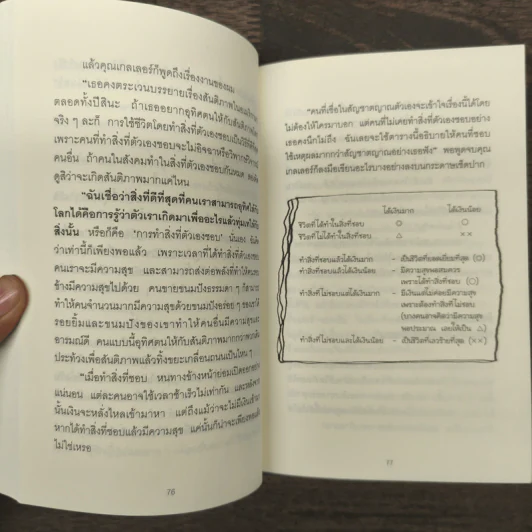 แล้วคุณเกลเลอร์ก็พูดถึงเรื่องงานของผม
"เธอคงตระเวนบรรยายเรื่องสันติภาพใน
ตลอดทั้งปีสินะ ถ้าเธออยากอุทิศตนให้กับสันติภาพ
จริง ๆ ละก็ การใช้ชีวิตโดยทำสิ่งที่ตัวเองชอบ
เพราะคนที่ทำสิ่งที่ตัวเองชอบจะไม่อิจฉาหรือวิพากษ์วิจารณ์
คนอื่น ถ้าคนในสังคมทำในสิ่งที่ตัวเองชอบกันหมด
ดูสิว่าจะเกิดสันติภาพมากแค่ไหน
"ฉันเชื่อว่าสิ่งที่ดีที่สุดที่คนเราสามารถอุทิศ
โลกได้คือการรู้ว่าตัวเราเกิดมาเพื่ออะไรแล้วทุ่มเท
สิ่งนั้น หรือก็คือ 'การทำสิ่งที่ตัวเองชอบ' นั่นเอง
ว่าเท่านี้ก็เพียงพอแล้ว เพราะเวลาที่ได้ทำสิ่งที่ตัวเองชอบ
คนเราจะมีความสุข และสามารถส่งต่อพลังที่ทำให้คน
ข้างมีความสุขไปด้วย คนขายขนมปังธรรมดา ๆ ก็สามารถ
ทำให้คนจำนวนมากมีความสุขด้วยขนมปังอร่อย ๆ ของเขาได้
รอยยิ้มและขนมปังของเขาทำให้คนอื่นมีความสุขและ
อารมณ์ดี คนแบบนี้อุทิศตนให้กับสันติภาพมากกว่าพวกเดิน
ประท้วงเพื่อสันติภาพแล้วทิ้งขยะเกลื่อนถนนเป็นไหน ๆ
"เมื่อทำสิ่งที่ชอบ หนทางข้างหน้าย่อมเปิดออก
แน่นอน แต่ละคนอาจใช้เวลาช้าเร็วไม่เท่ากัน
นั้นเงินจะหลั่งไหลเข้ามาหา แต่ถึงแม้ว่าจะไม่มีเงิน
หากได้ทำสิ่งที่ชอบแล้วมีความสุข แค่นั้นก็น่าจะเพียงพอแล้ว
ไม่ใช่เหรอ
76
"คนที่เชื่อในสัญชาตญาณตัวเองจะเข้าใจเรื่องนี้ได้โดย
ไม่ต้องให้ใครมาบอก แต่คนที่ไม่เคยทำสิ่งที่ตัวเองชอบอย่าง
เธอคงนึกไม่ถึง ฉันเลยจะใช้ตารางนี้อธิบายให้คนที่ชอบ
ใช้เหตุผลมากกว่าสัญชาตญาณอย่างเธอฟัง" พอพูดจบคุณ
เกลเลอร์ก็ลงมือเขียนอะไรบางอย่างลงบนกระดาษเช็ดปาก
ได้เงินมาก ได้เงินน้อย
ชีวิตที่ได้ทำในสิ่งที่ชอบ ◎ ○
ชีวิตที่ไม่ได้ทำในสิ่งที่ชอบ △ ××
ทำสิ่งที่ชอบแล้วได้เงินมาก – เป็นชีวิตที่ยอดเยี่ยมที่สุด (◎)
ทำสิ่งที่ชอบแล้วได้เงินน้อย – มีความสุขพอสมควร
เพราะได้ทำสิ่งที่ชอบ (○)
ทำสิ่งที่ไม่ชอบแต่ได้เงินมาก – มีเงินแต่ไม่ค่อยมีความสุข
เพราะต้องทำสิ่งที่ไม่ชอบ
(บางคนอาจคิดว่ามีความสุข
พอประมาณ เลยให้เป็น △)
ทำสิ่งที่ไม่ชอบและได้เงินน้อย – เป็นชีวิตที่เลวร้ายที่สุด (××)
77